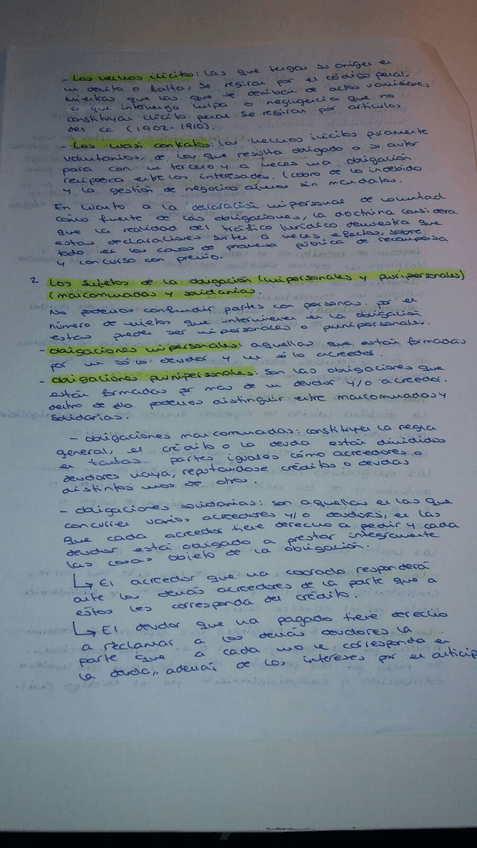 - Los hechos ilícitos: las que tengan su origen en
un delito o falta, se regirán por el código penal,
mientras que las que se derivan de actos u omisiones
en que intervenga culpa o negligencia que no
constituyan ilícito penal se regirán por artículos
del CC (1902-1910).
- Los cuasi contratos: los hechos lícitos puramente
voluntarios, de los que resulta obligado a su autor
para con un tercero y a veces una obligación
recíproca entre los interesados. (cobro de lo indebido
y la gestión de negocios ajenos sin mandato).
En cuanto a la declaración unipersonal de voluntad
como fuente de las obligaciones, la doctrina considera
que la realidad del tráfico jurídico demuestra que
estas declaraciones surten a veces efectos, sobre
todo en los casos de promesa pública de recompensa
y concurso con premio.
2 Los sujetos de la obligación (unipersonales y pluripersonales)
(mancomunadas y solidarias.
No podemos confundir partes con personas. por el
número de sujetos que intervienen en la obligación
estas pueden ser unipersonales o pluripersonales.
- obligaciones unipersonales: aquellas que están formadas
por un sólo deudor y un sólo acreedor.
- obligaciones pluripersonales: son las obligaciones que
están formadas por mas de un deudor y/o acreedor.
dentro de ella podemos distinguir entre mancomunadas y
solidarias.
- obligaciones mancomunadas: constituyen la regla
general, el crédito o la deuda están divididos
en tantas partes iguales como acreedores o
deudores haya, reputándose créditos o deudas
distintos unos de otros.
- obligaciones solidarias: son aquellas en las que
concurren varios acreedores y/o deudores, en las
que cada acreedor tiene derecho a pedir y cada
deudor está obligado a prestar íntegramente
las cosas objeto de la obligación.
↳ El acreedor que ha cobrado responderá
ante los demás acreedores de la parte que a
estos les corresponda del crédito.
↳ El deudor que ha pagado tiene derecho
a reclamar a los demás deudores la
parte que a cada uno le corresponda en
la deuda, además de los intereses por el anticip